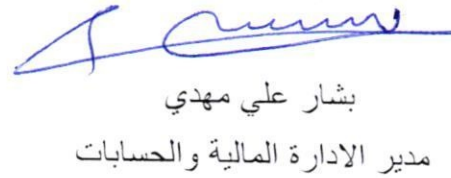 بشار علي مهدي
مدير الادارة المالية والحسابات